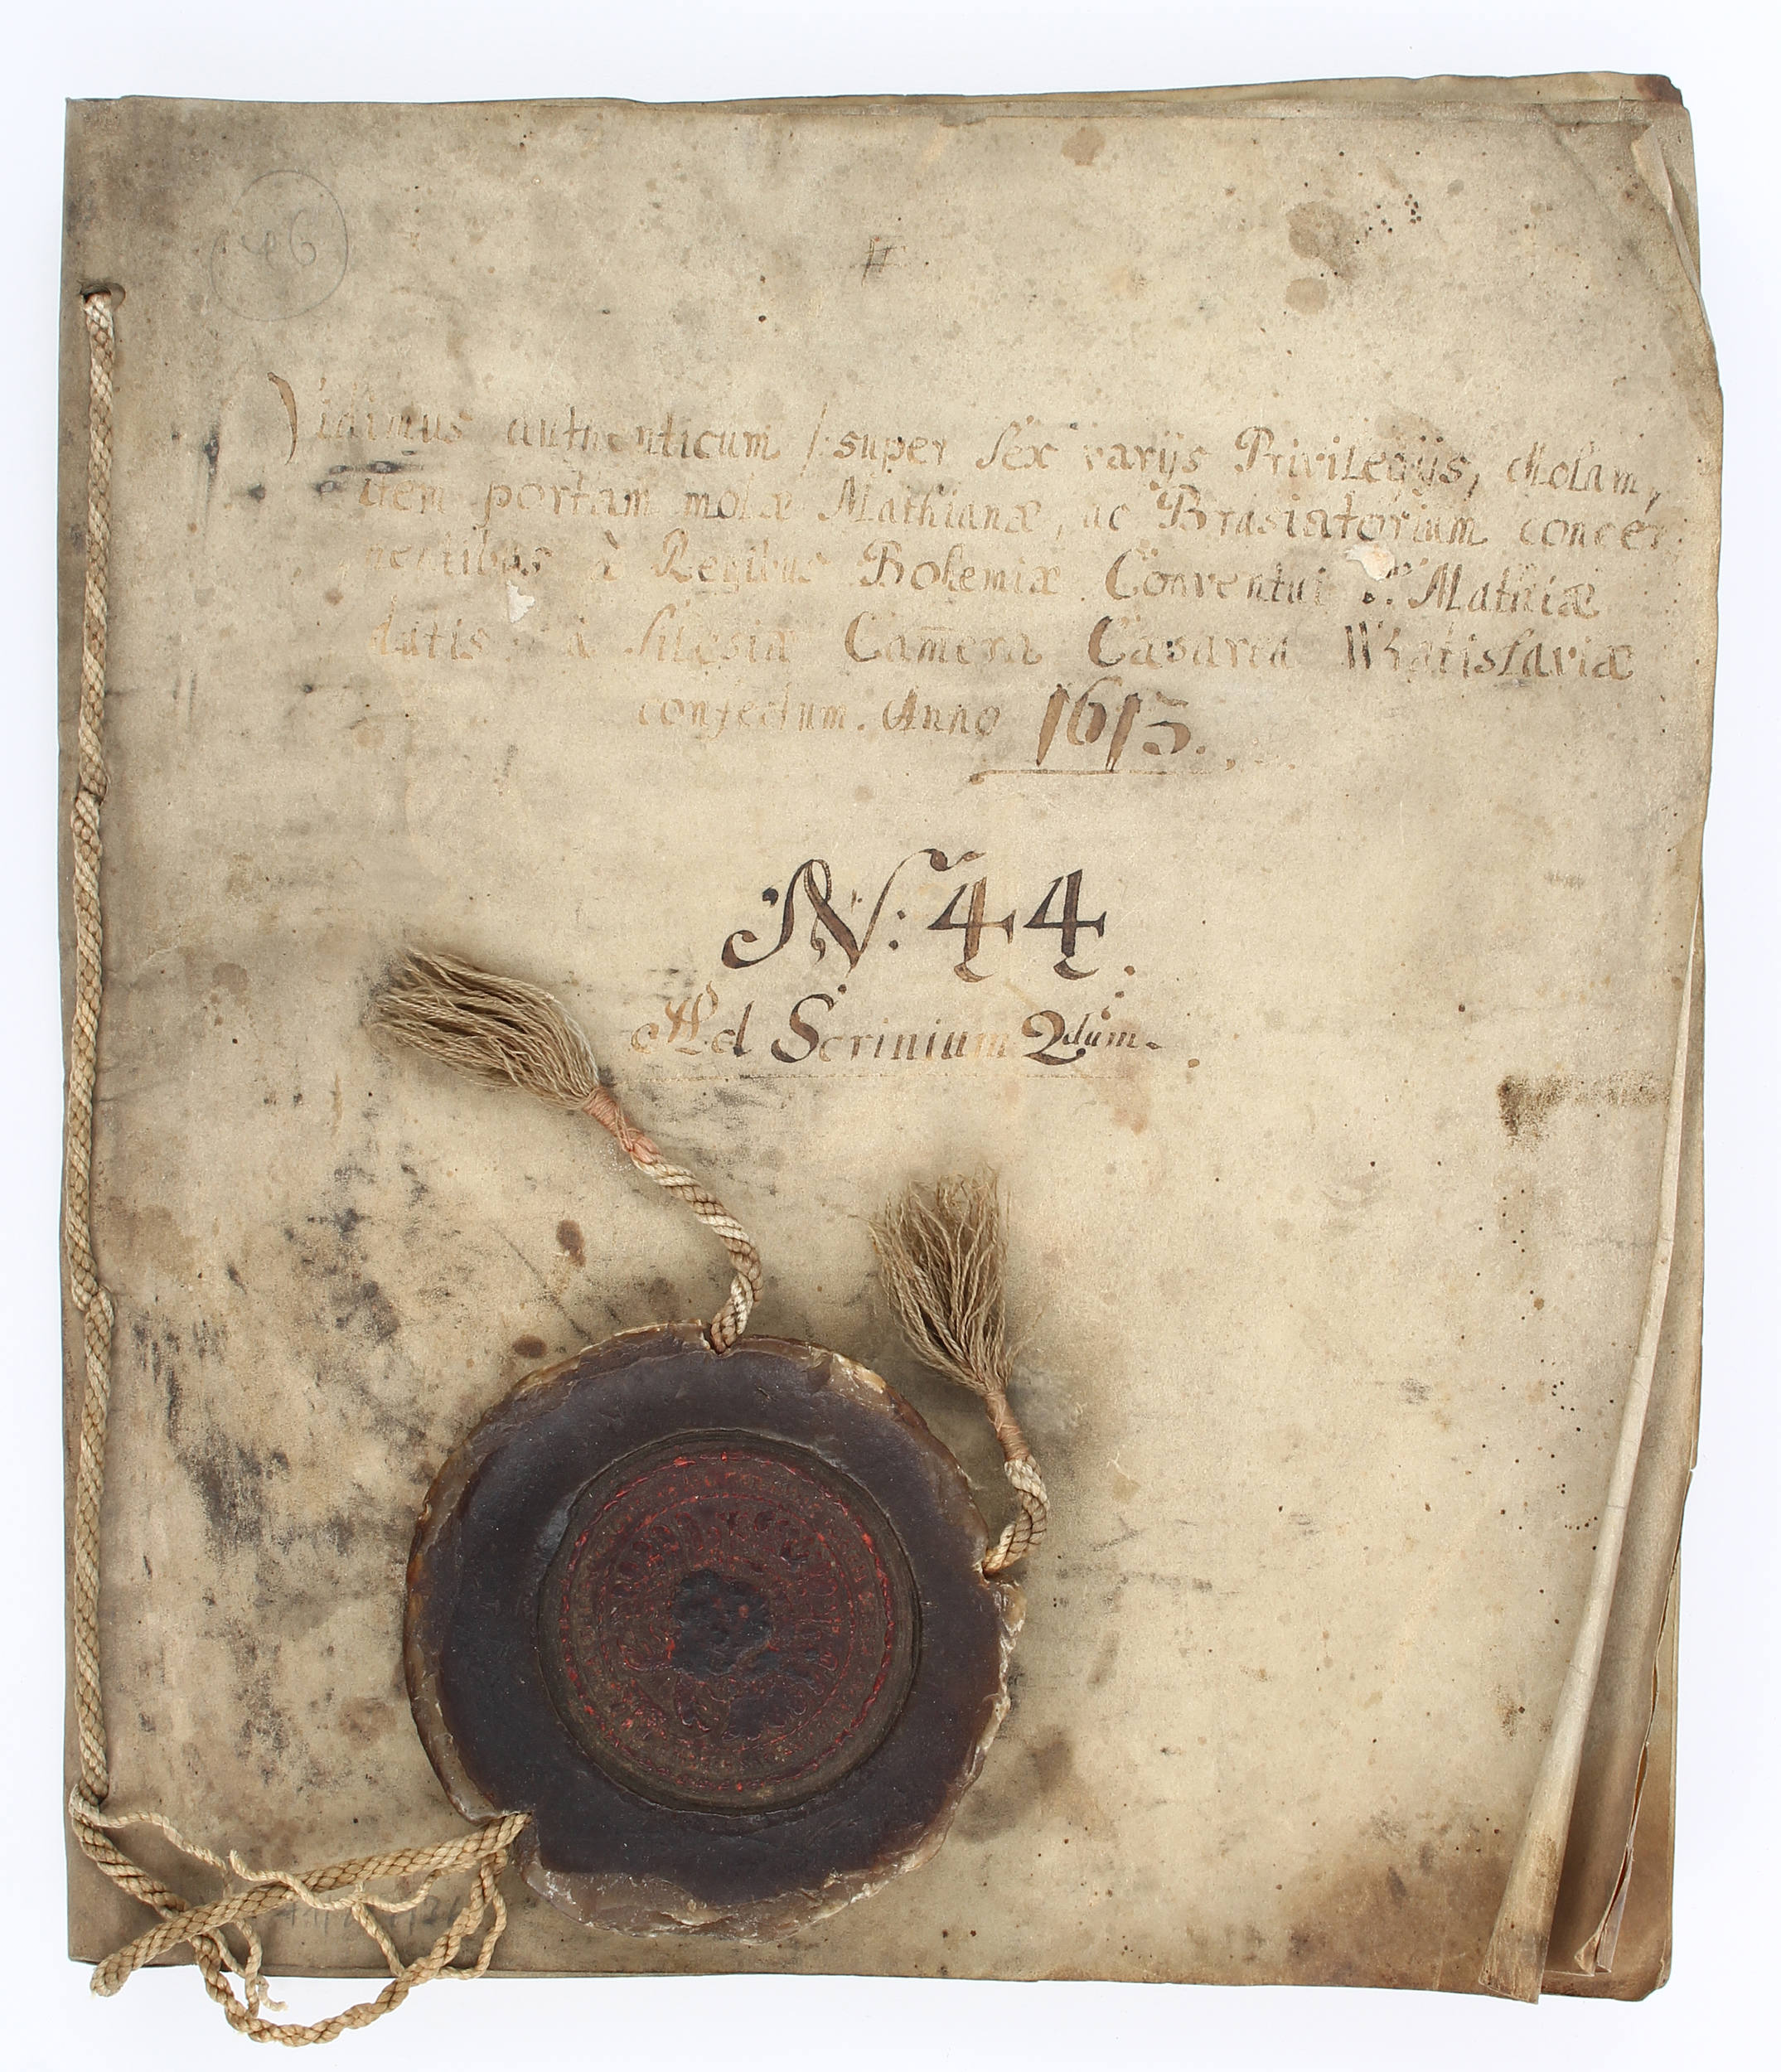 46
#
Vidimus authenticum /: super sex varijs Privilegijs, Molam,
item portam molæ Mathianæ, ac Brasiatorium concer
nentibus à Regibus Bohemiæ Conventui S. Mathiæ
datis à Silesiæ Cam̄era Cæsarea Wratislaviæ
confectum. Anno 1615.
N: 44.
Ad Scrinium 2dum.